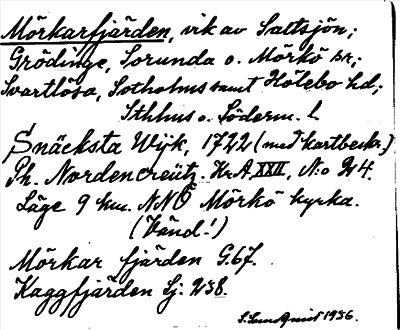 Mörkarfjärden, vik av Saltsjön;
Grödinge, Sorunda o. Mörkö sr;
Svartlösa, Sotholms samt Hölebo hd;
Sthlms o. Söderm. l.
Snäcksta Wijk, 1722 (med kartbeskr.)
Ph. Nordencreütz. Kr.A. XXII, N:o 24.
Läge 9 km. NNÖ Mörkö kyrka.
(Vänd!)
Mörkar fjärden G.67.
Kaggfjärden Sj. 238.
1936.